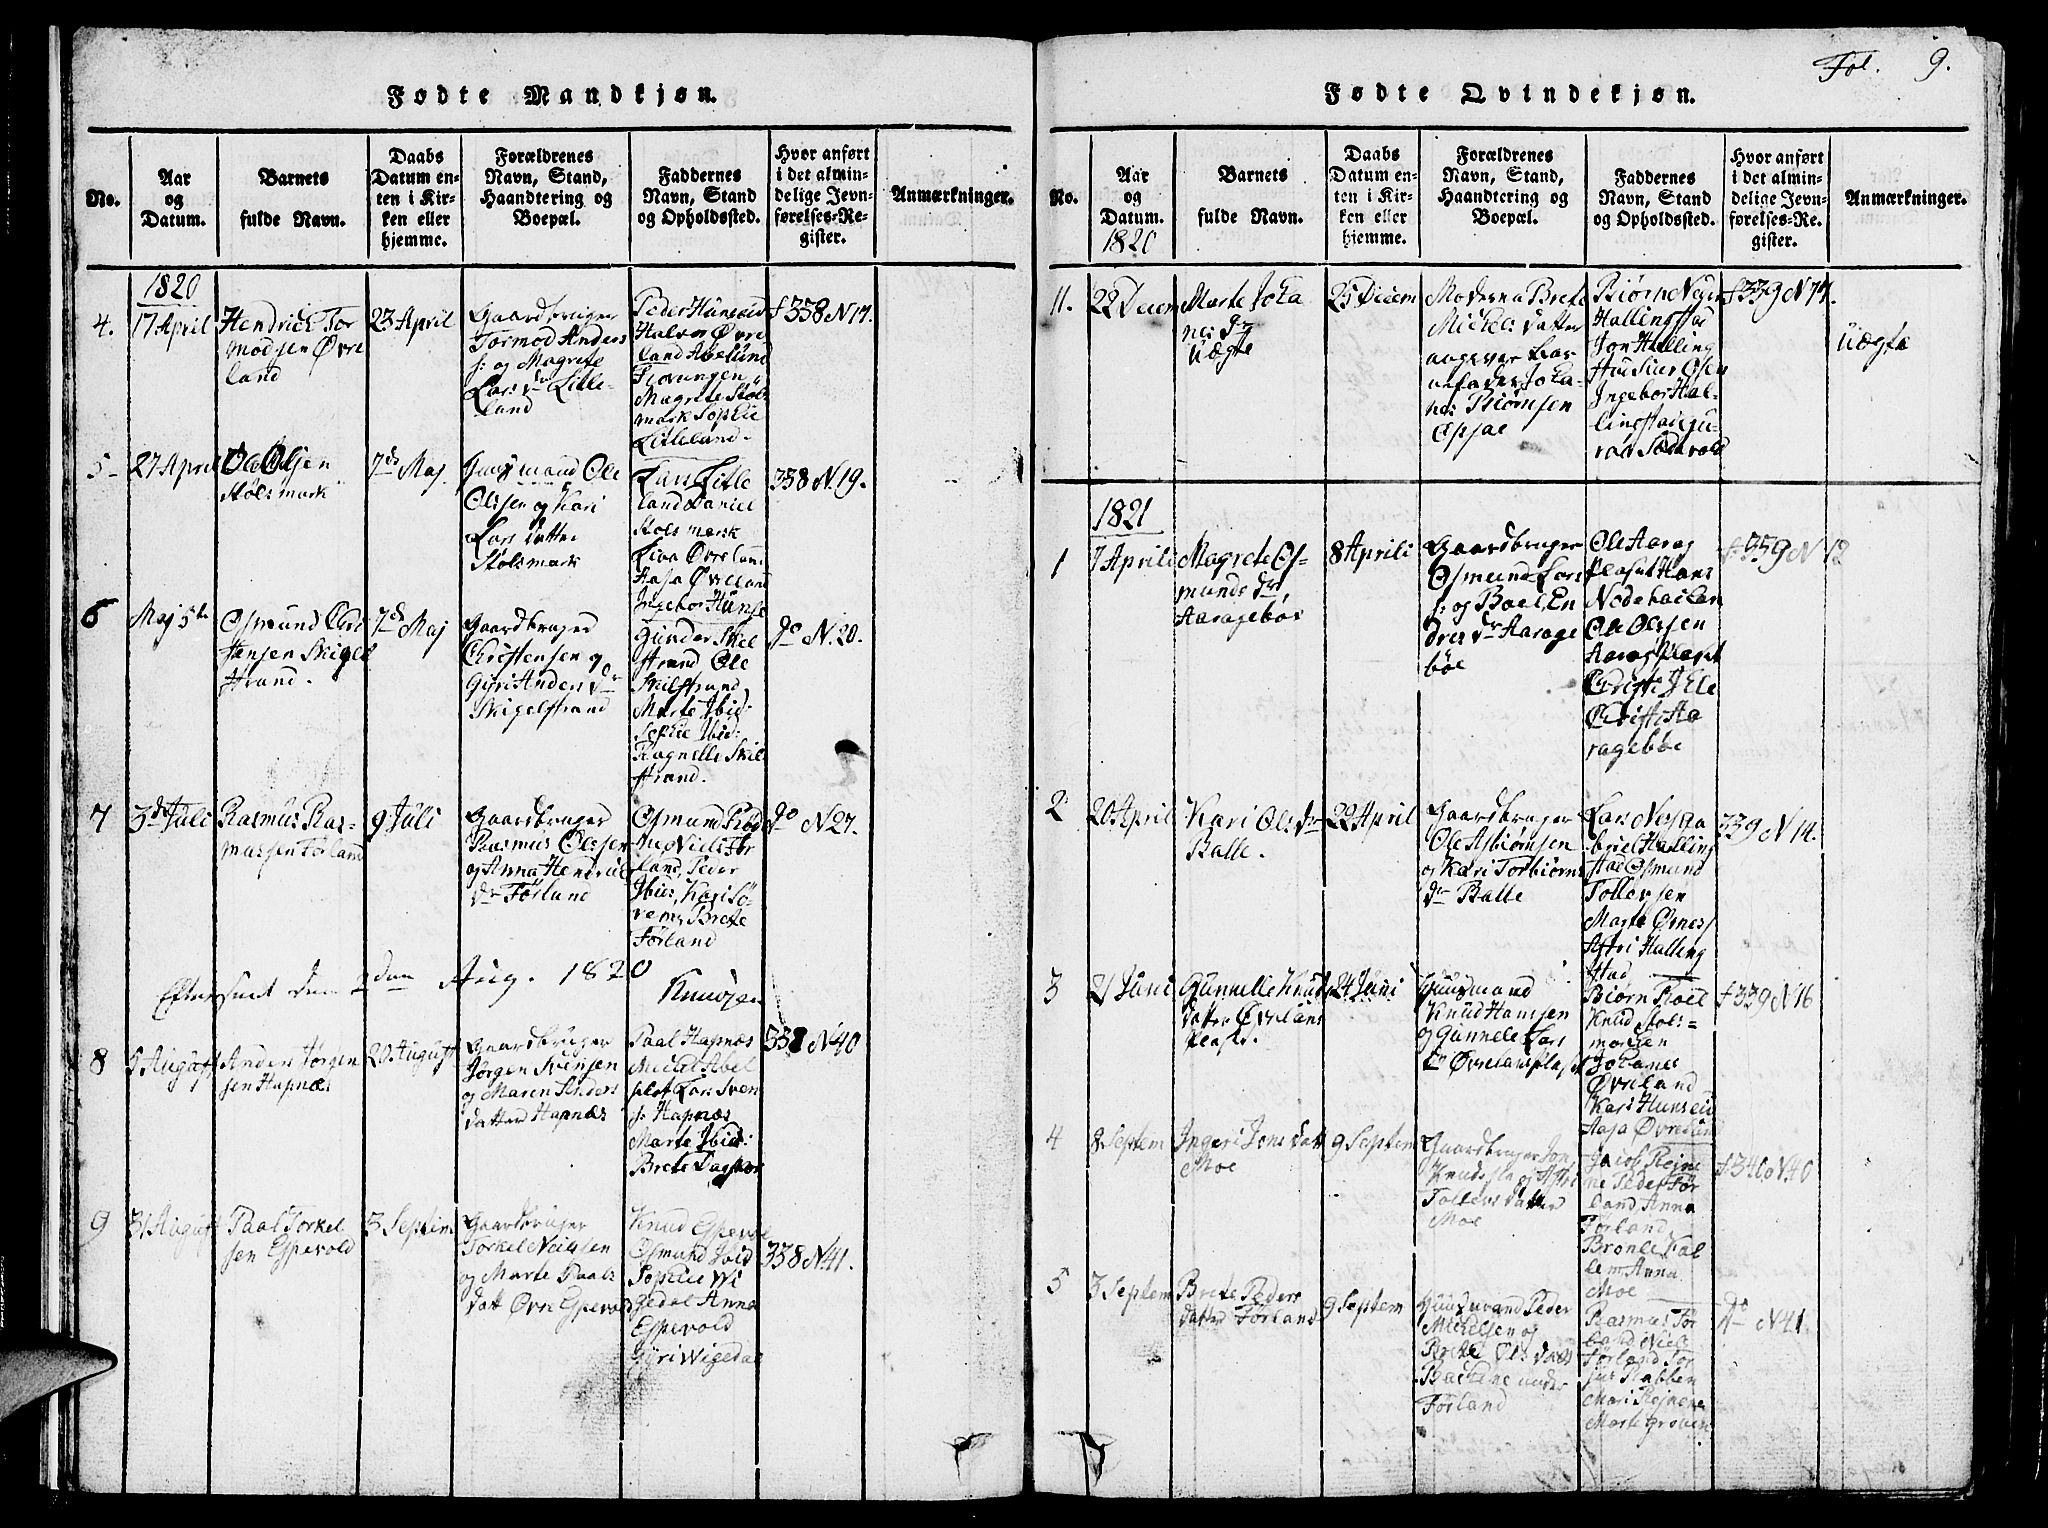 Fødte Mandkjøn.
No.
Aar
og
Datum.
Barnets
fulde Navn.
Daabs
Datum en-
ten i Kir-
ken eller
hjemme.
Forældrenes
Navn, Stand,
Haandtering og
Boepæl.
Faddernes
Navn, Stand
og Opholdssted.
Hvor anført
i det almin-
delige Jevn-
førelses-Re-
gister.
Anmærkninger.
1820
4.
17 April
Hendrich Tor
modsen Øvre
land
23 April
Gaardbruger
Tormod Anders
s: og Magrete
Lars dr Litle-
land
Peder Hunseid
Halvor Øvre
land Abelund
Fiorungen
Magrete Støls
mark Sophie
Litleland.
f 338 N 17.
5
27 April
Ole Olsen
Støls mark
7de Maj
Huusmand Ole
Olssen og Kari
Lars datter
Stølsmark
Lars Litle
land Daniel
Støls mark
Lisa Øvreland
Aasa Øvreland
Ingebor Hunse
338 N. 19.
6
Maj 5te
Osmund Chri
stensen Skigel
strand.
7de Maj
Gaardbruger
Christensen og
Giuri Anders dr
Skigelstrand
Gunder Skil
strand Ole
Skilstrand
Marte Ibid:
Sophie Ibid:
Ragnelle Skil
strand.
do N. 20.
7
3de Juli
Rasmus Ras-
mussen Førland
9 Juli
Gaardbruger
Rasmus Olssen
og Anna Hendrik
dr Førland
Osmund Rød
Niels Før
land, Peder
Ibid, Kari Sø
vem, Brete
Førland
do N 27.
Efterseet den 2den Aug. 1820
Knudzen
8
5 August
Anders Jørgen
sen Hapnæs
20 August
Gaardbruger
Jørgen Svensen
og Maren Anders
datter Hapnæs
Paal Hapnæs
Michel Abel
Lars Sven
s: Hapnæs
Marte Ibid:
Brete
338 N 40
9
31 August
Paal Torkel
sen Espevold
3 Septem
Gaardbruger
Torkel Neilssen
og Marte Paals
datt Øvre Espevold
Knud Espevol
Osmund Ibid
Sophie Wi
gedal Anna
Espevold
Gyri Wigedal
338 N. 41.
Fol. 9.
Fødte Qvindekjøn.
No.
Aar
og
Datum.
1820
Barnets
fulde Navn.
Daabs
Datum en-
ten i Kir-
ken eller
hjemme.
Forældrenes
Navn, Stand,
Haandtering og
Boepæl.
Faddernes
Navn, Stand
og Opholdssted.
Hvor anført
i det almin-
delige Jevn-
førelses-Re-
gister.
Anmærkninger.
11.
22 Decem
Marte Joha
nes dr
Uægte
25 Decem
Moderen a Brete
Michels datter
angever bar
nefader Joha-
nes Biørnsen
Biørn Neder
Hallingstad
Jon Halling
Ingebor Hal-
lingstad Gu-
f 339 N 77.
uægte
1821
1
7 Aprili
Magrete Os-
munds dr
Aaragebøe
8 Aprili
Gaardbruger
Osmund Lars
s: og Boel En
dres dr Aarage
bøe
Ole Aarag
Hans
Ole Olssen
Aarag plaset
Christi Aa
ragebøe
f 359 N 12
2
20 April
Kari Ols dr
Balle.
22 April
Gaardbruger
Ole Asbiørnsen
og Kari Torbiørns
dr Balle
Lars
Halling
stad Osmund
Tollevsen
Marte Øsnes
Astri Halling
stad
339 N 14.
3
21 Juni
Gunnelle Knuds
datter Øvrelans
Plads.
24 Juni
Huusmand
Knud Hansen
og Gunnele Lars
dr Øvrelansplads
Biørn Roel
Knud Støls-
marken
Johanes
Øvreland
Kari Hunseid
Aasa Øvreland
f 339 N 16
4
8 Septem
Ingeri Jons datt
Moe
9 Septem
Gaardbruger Jon
Knudssen og Astri
Tollevs datter
Moe
Jacob Rejne
Peder Før
land Anna
Førland
Anna
Moe
f. 340 N 40
5
3 Septem
Brete Peders
datter Førland
9 Septem
Huusmand Peder
Michelsen og
Brete Ols datt
Backene under
Førland
Rasmus Før
land Niels
Førland Tor
Rabben
Mari Rejnene
Marte Groven
do N 41